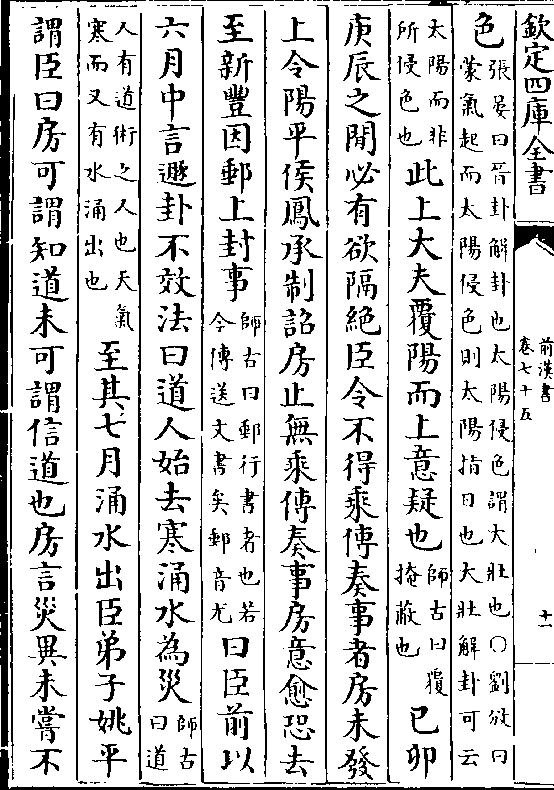 欽定四庫全書
前漢書
卷七十五
十一
色張晏曰晉卦解卦也太陽侵色謂大壯也〇劉攽曰
蒙氣起而太陽侵色則太陽指日也大壯解卦可云
太陽而非
所侵色也
此上大夫覆陽而上意疑也
師古曰覆
掩蔽也
已卯
庚辰之閒必有欲隔絶臣令不得乘傳奏事者房未發
上令陽平侯鳳承制詔房止無乘傳奏事房意愈恐去
至新豐因郵上封事
師古曰郵行書者也若
今傳送文書矣郵音尤
曰臣前以
六月中言遯卦不效法曰道人始去寒涌水為災
師古
曰道
人有道術之人也天氣
寒而又有水涌出也
至其七月涌水出臣弟子姚平
謂臣曰房可謂知道未可謂信道也房言災異未嘗不